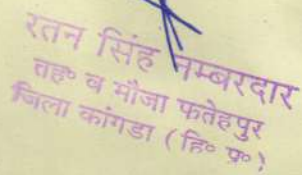 रतन सिंह नम्बरदार
तह० व मौजा फतेहपुर
जिला कांगडा ( हि० प्र० )